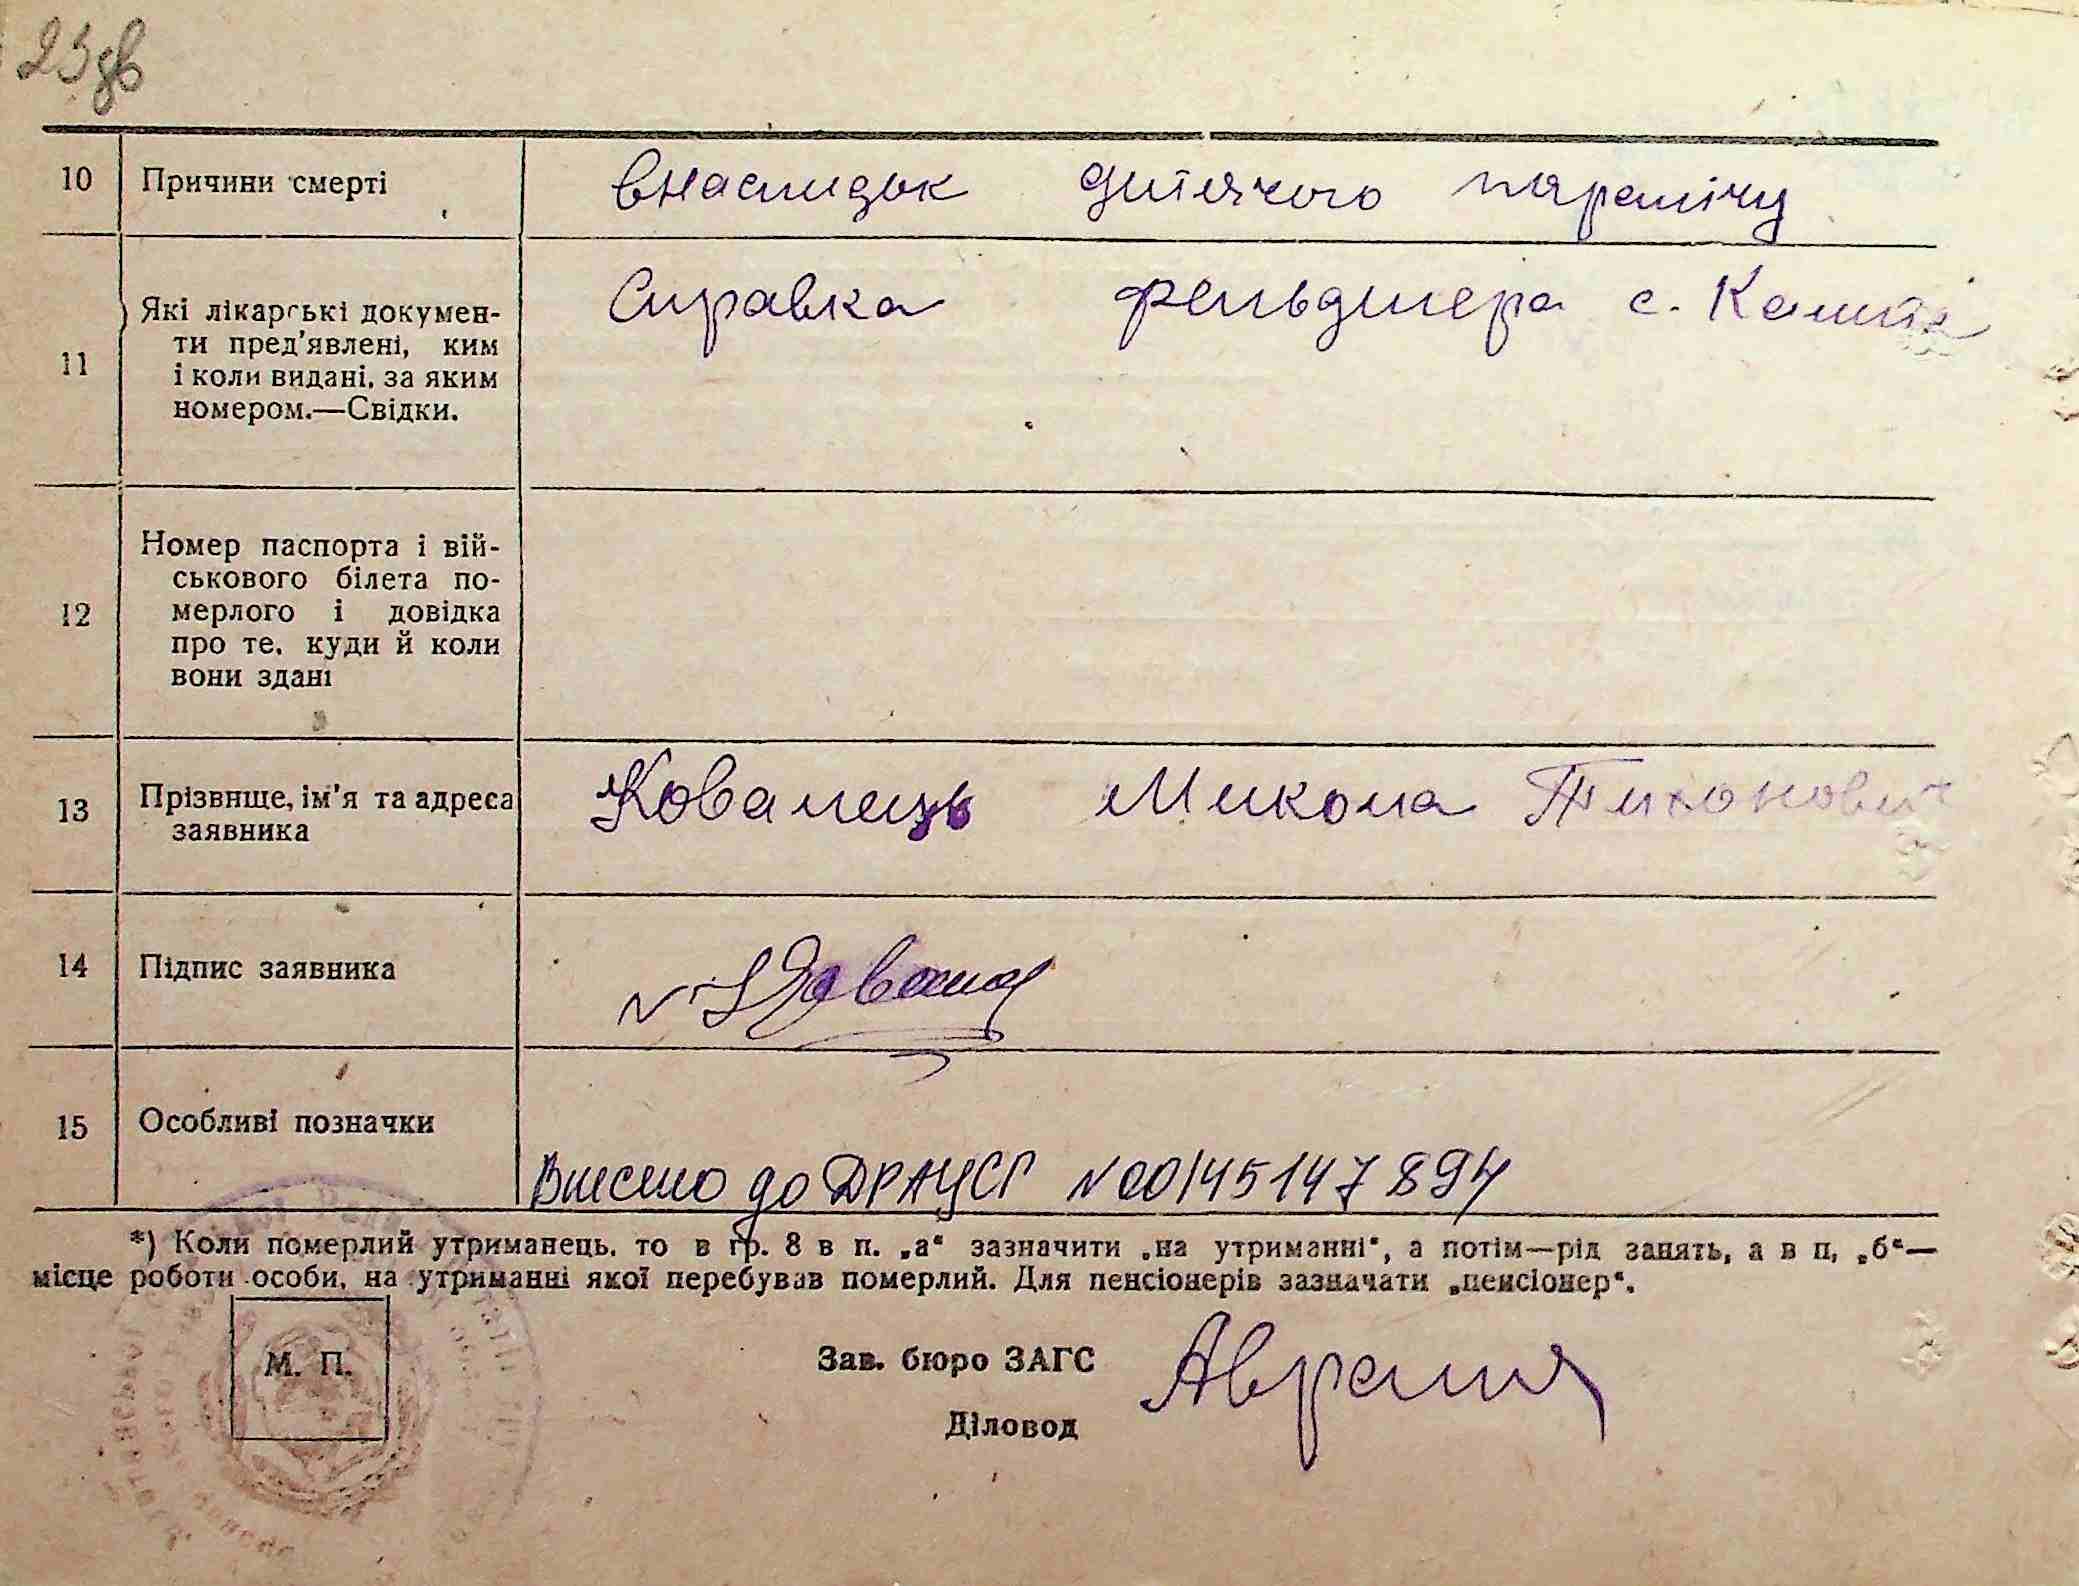 23 зв
10 Причини смерті внаслидок дитячого паралічу
11 Які лікарські докумен-
ти пред'явлені, ким
і коли видані, за яким
номером.—Свідки.
Справка фельдшера с.
12 Номер паспорта і вій-
ськового білета по-
мерлого і довідка
про те, куди й коли
вони здані
13 Прізвище, ім'я та адреса
заявника
Ковалець Микола Тихонович
14 Підпис заявника
15 Особливі позначки
Внесено до ДРАЦСГ №00145147894
*) Коли померлий утриманець, то в гр. 8 в п. „а“ зазначити „на утриманні“, а потім—рід занять, а в п, „б“—
місце роботи особи, на утриманні якої перебував померлий. Для пенсіонерів зазначати „пенсіонер“.
М. П.
Зав. бюро ЗАГС
Діловод